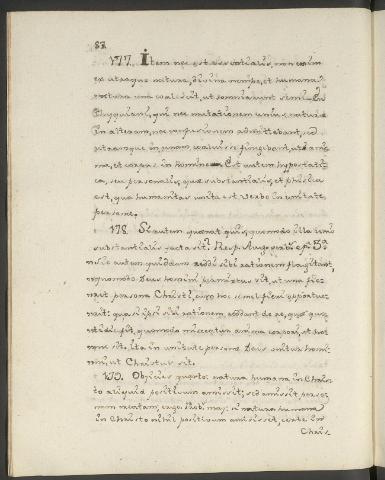 82.
177. Item nec est essentialis, non enim
ex utraque natura, divina nempe, et humana
natura una coaluit, ut somniarunt
Phrygiani, qui nec mutationem unius naturæ
in alteram, nec confusionem admittebant, sed
utramque in unam coaluisse fingebant, ut anima
ma, et corpus in homine. Est autem hypostati-
ca, seu personalis, quæ substantialis, et physica
est, qua humanitas unita est Verbo in unitate
personæ.
178. Si autem quærat quis, quomodo illa unio
substantialis facta sit? Resp. Aug. epist. 3ª
sic autem quidam reddi sibi rationem flagitant,
quomodo Deus homini permixtus sit, ut una fie-
ret persona Christi, cum hoc semel fieri oportue-
rit: quasi ipsi sibi rationem reddant de re, quæ quo-
tidie fit, quomodo misceatur anima corpori, ut ho-
mo sit. Ita in unitate personæ Deus unitur homi-
ni, ut Christus sit.
179. Objicies quarto: natura humana in Chris-
to aliquid positivum amissit; sed amissit perso-
nam creatam; ergo. Prob. maj: si natura humana
in Christo nihil positivum amisisset, certe in
Chris-